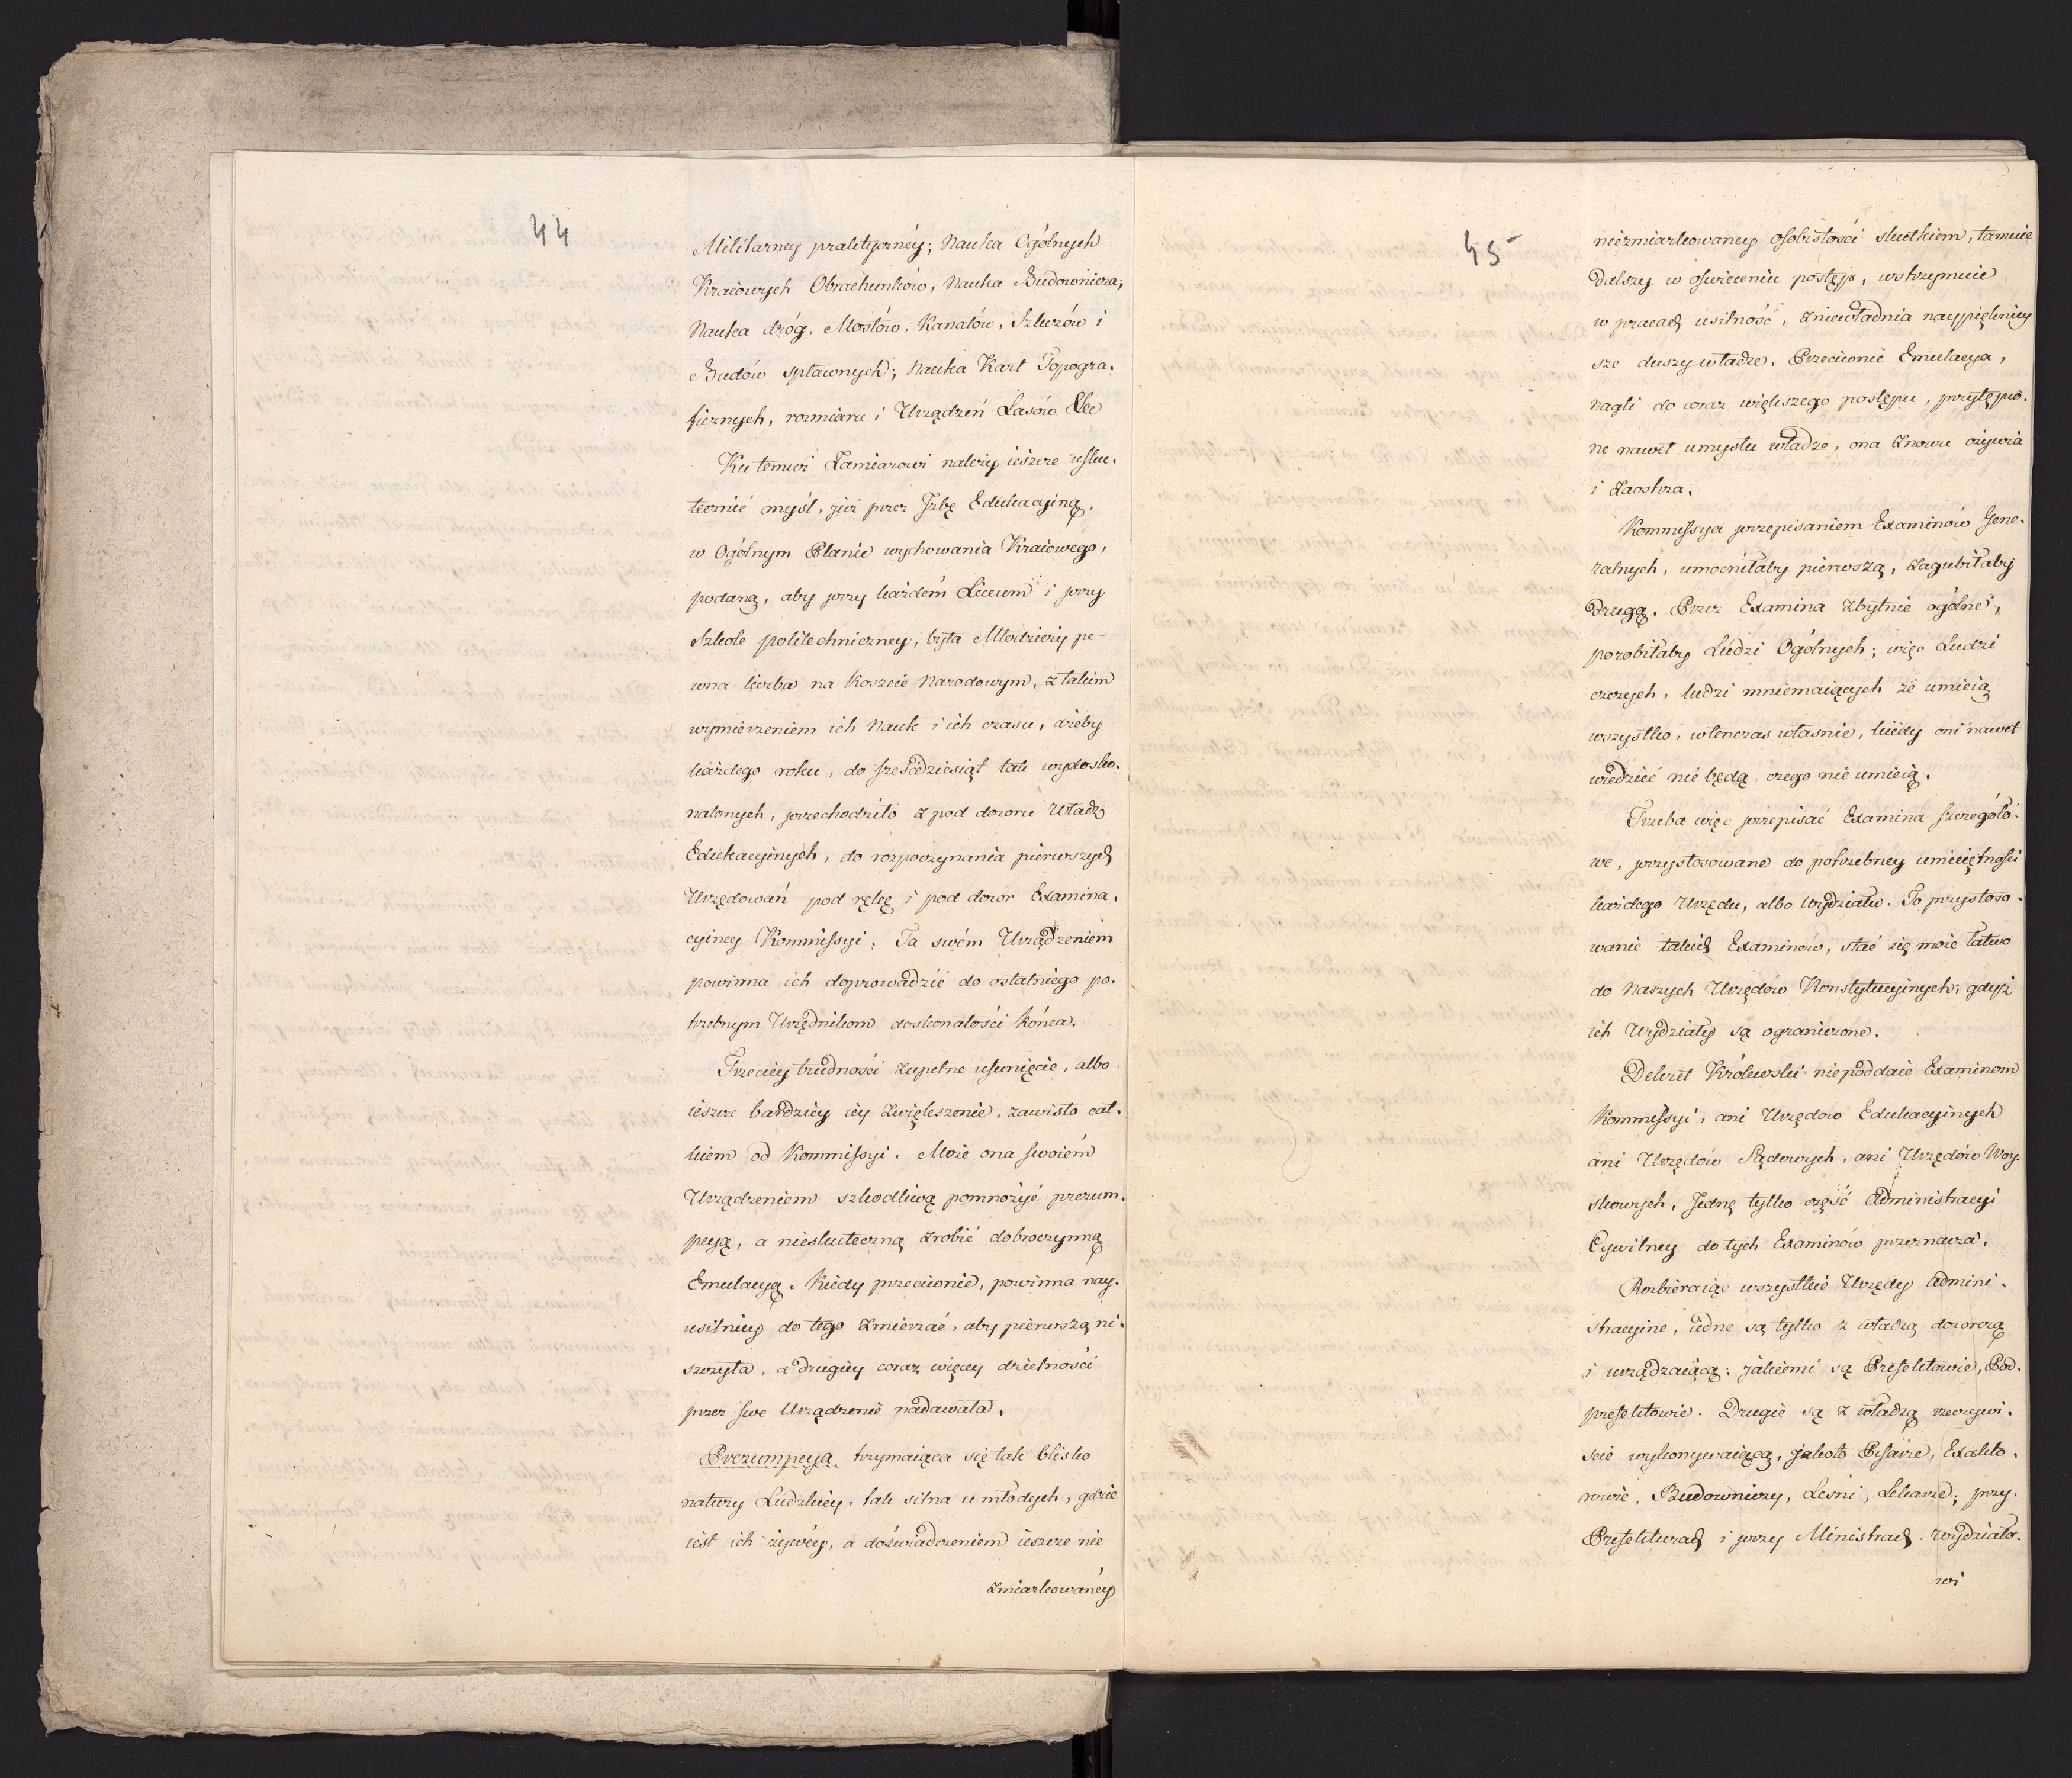 44
Militarney praktyczney; Nauka Ogólnych
Kraiowych Obrachunków, Nauka Budownicza;
Nauka dróg, Mostów, Kanałów, Szluzów i
Budów spławnych; Nauka Kart Topogra.
ficznych, rozmiaru i Urządzeń Lasów &c
Ku temuż Zamiarowi należy ieszcze usku.
tecznić myśl, już przez Izbę Edukacyiną,
w Ogólnym Planie wychowania Kraiowego,
podaną, aby przy każdém Liceum i przy
Szkole politechniczney, była Młodzieży pe-
wna liczba na Koszcie Narodowym, z takim
wymierzeniem ich Nauk i ich czasu, ażeby
każdego roku, do sześćdziesiąt tak wydosko.
nalonych, przechodziło z pod dozoru Władz
Edukacyinych, do rozpoczynania pierwszych
Urzędowań pod rękę i pod dozor Examina.
cyiney Kommissyi. Ta swém Urządzeniem
powinna ich doprowadzić do ostatniego po.
trzebnym Urzędnikom doskonałości końca.
Trzeciey trudności zupełne usunięcie, albo
ieszcze bardziey iey zwiększenie, zawisło cał.
kiem od Kommissyi. Może ona swoiém
Urządzeniem szkodliwą pomnożyć prezum.
pcyą, a nieskuteczną zrobić dobroczynną
Emulacyą. Kiedy przeciwnie, powinna nay.
usilniey do tego zmierzać, aby pierwszą ni.
szczyła, a drugiey coraz więcey dzielności
przez swe Urządzenie nadawała.
Prezumpcya, trzymaiąca się tak blisko
natury Ludzkiey, tak silna u młodych, gdzie
iest ich żywéy, a doświadczeniem ieszcze nie
zmiarkowanéy
45
niezmiarkowaney osobistości skutkiem, tamuie
dalszy w oświeceniu postęp, wstrzymuie
w pracach usilność, zniewładnia naypiękniey
sze duszy władze. Przeciwnie Emulacya,
nagli do coraz większego postępu, przytępio.
ne nawet umysłu władze, ona znowu ożywia
i zaostrza.
Kommissya przepisaniem Examinów Gene.
ralnych, umocniłaby pierwszą, zagubiłaby
drugą. Przez Examina zbytnie ogólne,
porobiłaby Ludzi Ogólnych; więc Ludzi
czczych, ludzi mniemaiących że umieią
wszystko, wtenczas własnie, kiedy oni nawet
wiedzieć nie będą, czego nie umieią.
Trzeba więc przepisać Examina szczegóło.
we, przystosowane do potrzebney umieiętności
każdego Urzędu, albo Wydziału. To przystoso.
wanie takich Examinów, stać się może łatwo
do Naszych Urzędów Konstytucyinych; gdyż
ich Wydziały są ograniczone.
Dekret Królewski niepoddaie Examinom
Kommissyi, ani Urzędów Edukacyinych
ani Urzędów Sądowych, ani Urzędów Woy.
skowych. Jednę tylko część Administracyi
Cywilney do tych Examinów przeznacza.
Rozbieraiąc wszystkie Urzędy Admini.
stracyine, iedne są tylko z władzą dozorczą
i urządzaiącą; jakiemi są Prefektowie, Pod.
prefektowie. Drugie są z władzą rzeczywi.
ście wykonywaiącą, jakoto Pisarze, Exakto.
rowie, Budowniczy, Leśni, Lekarze; przy
Prefekturach i przy Ministrach. Wydziało.
wi